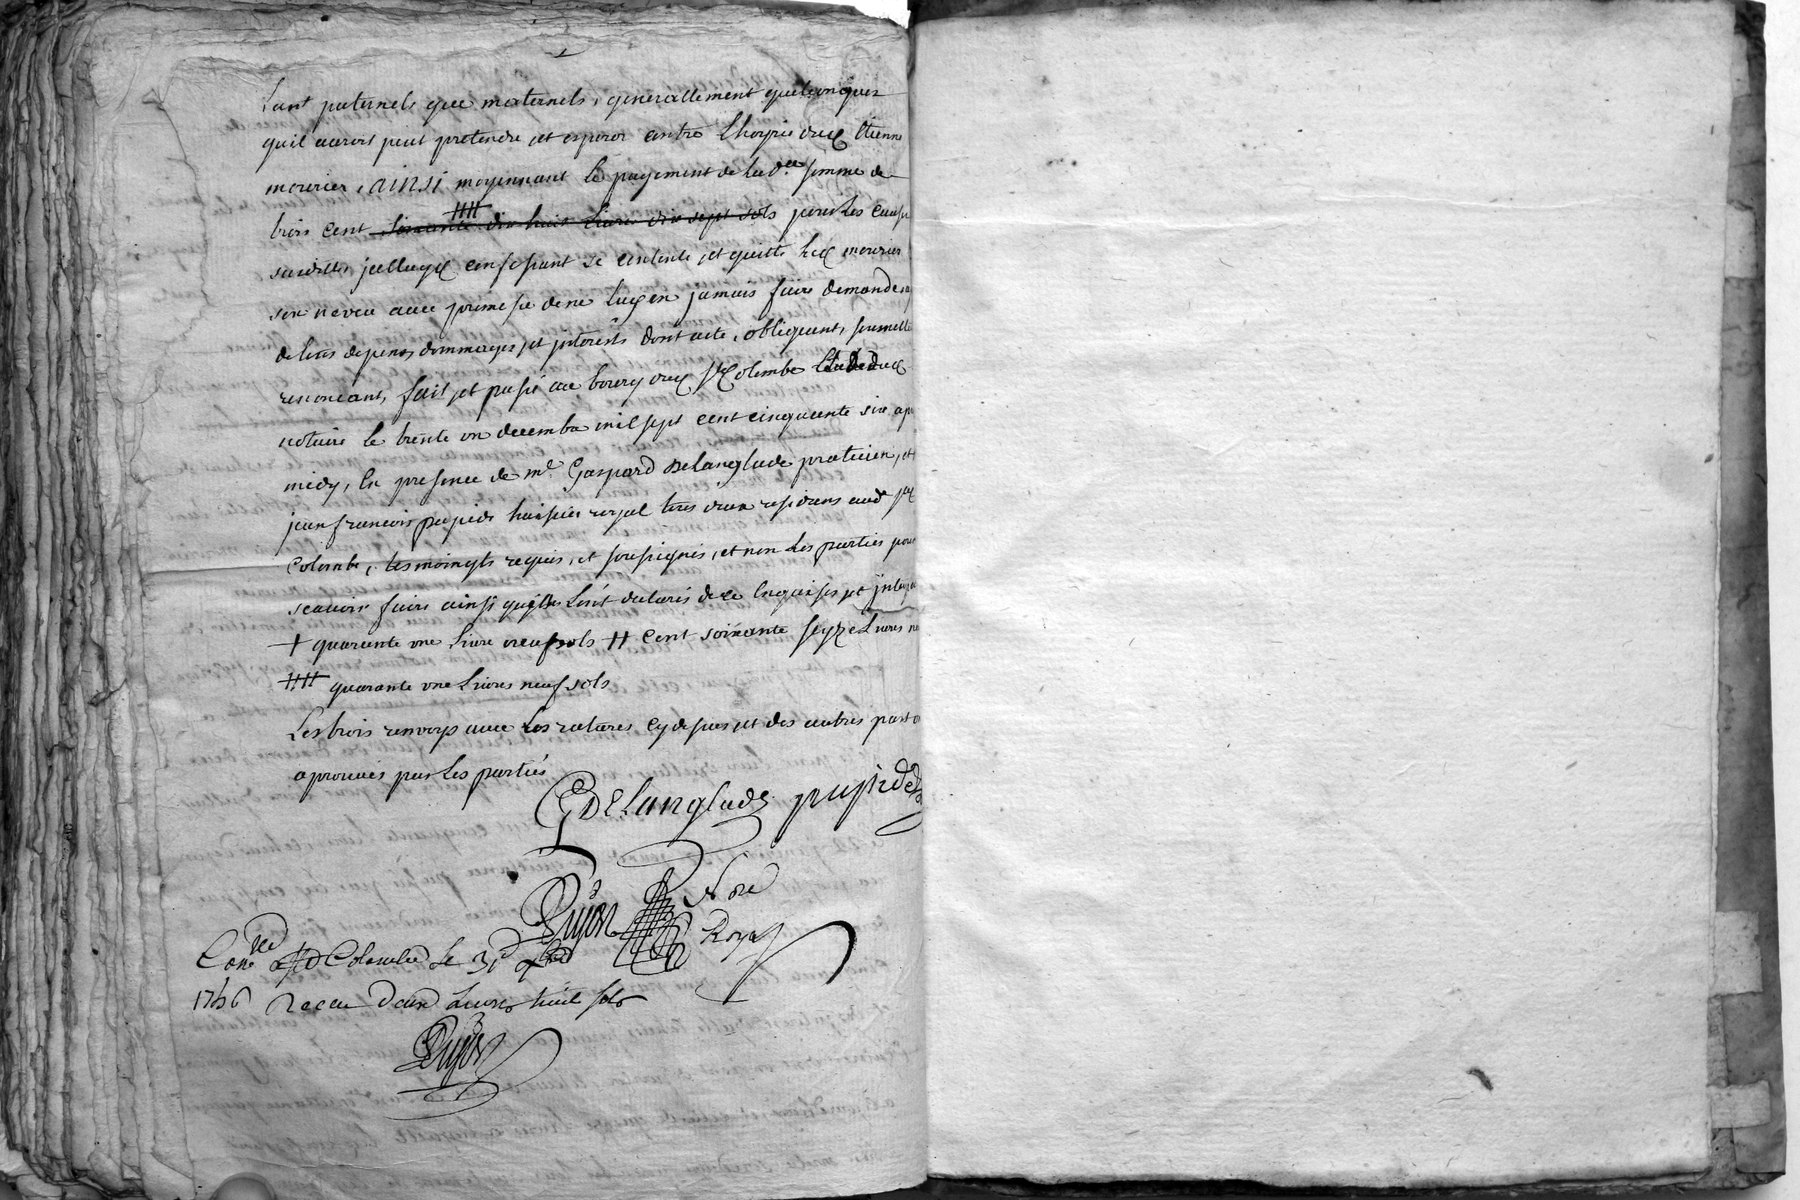 tant paternels que maternels, generallement quelconques
quil auroit peut pretendre et esperer contre Etienne
mourier, ainsi moyennant le payement de lad.e somme de
trois cent soixante dix huit livres dix sept sols pour les
se contente et quitte mourier
son neveu avec promesse de ne luy en jamais faire demande
depens dommages et interests dont acte, obligeant, soumett
renoncant, fait et passé au bourg Colombe
notaire le trente un decembre mil sept cent cinquante six ap
midy, en presence de me Gaspard Delanglade praticien, et
jean francois pupide huissier royal
Colombe, tesmoingts requis, et soussignés, et non les parties pour
scavoir faire ainsi declaré de ce enquises et
+ quarante une livre neuf sols ++ cent soixante seyze livres
quarante une livres neuf sols
Les trois renvoys avec les ratures cy dessus et des autres part
aprouvés par les parties
GDelanglade pupide
Dujon Nore
Royal
Con.lé a Ste Colombe le 31 xbre
1756 Receu deux livres huit sols
Dujon